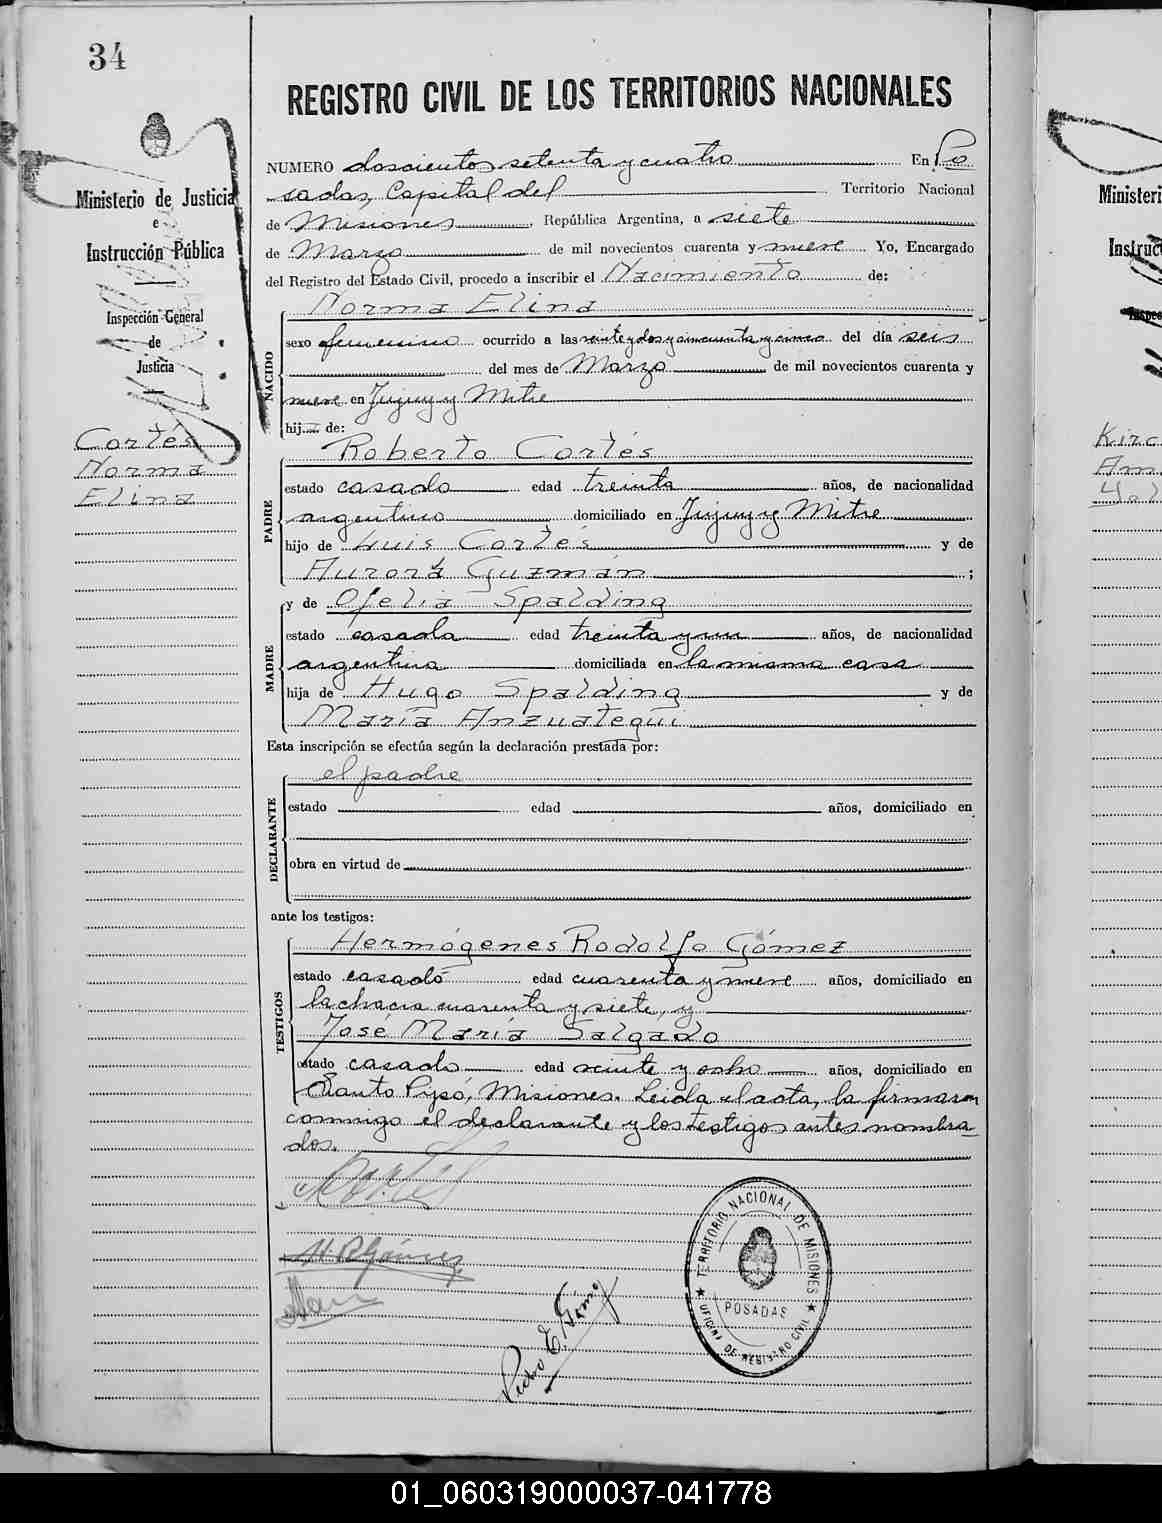 34
Ministerio de Justicia
e
Instrucción Pública
Inspección General
de
Justicia
Cortés
Norma
Elina
REGISTRO CIVIL DE LOS TERRITORIOS NACIONALES
NUMERO doscientos setenta y cuatro En Po
sadas, Capital del Territorio Nacional
de Misiones, República Argentina, a siete
de Marzo de mil novecientos cuarenta y nueve Yo, Encargado
del Registro del Estado Civil, procedo a inscribir el Nacimiento de:
NACIDO
Norma Elina
sexo femenino ocurrido a las veinte y dos y cincuenta y cinco del día seis
del mes de Marzo de mil novecientos cuarenta y
nueve en Jujuy y Mitre
hij de:
PADRE
Roberto Cortés
estado casado edad treinta años, de nacionalidad
argentino domiciliado en Jujuy y Mitre
hijo de Luis Cortés y de
Aurora Guzmán ;
MADRE
y de Ofelia Spalding
estado casada edad treinta y un años, de nacionalidad
argentina domiciliada en la misma casa
hija de Hugo Spalding y de
María Anzuategui
Esta inscripción se efectúa según la declaración prestada por:
DECLARANTE
el padre
estado edad años, domiciliado en
obra en virtud de
ante los testigos:
TESTIGOS
Hermógenes Rodolfo Gómez
estado casado edad cuarenta y nueve años, domiciliado en
la chacra cuarenta y siete, y
José María Salgado
estado casado edad veinte y ocho años, domiciliado en
Santo Pipó, Misiones. Leida el acta, la firmaron
conmigo el declarante y los testigos antes nombra
dos.
Cortés
H. R. Gómez
Pedro E. Gómez
TERRITORIO NACIONAL DE MISIONES
POSADAS
OFICINA DE REGISTRO CIVIL
Ministeri
Instruc
Inspec
Kirc
Am
01_060319000037-041778